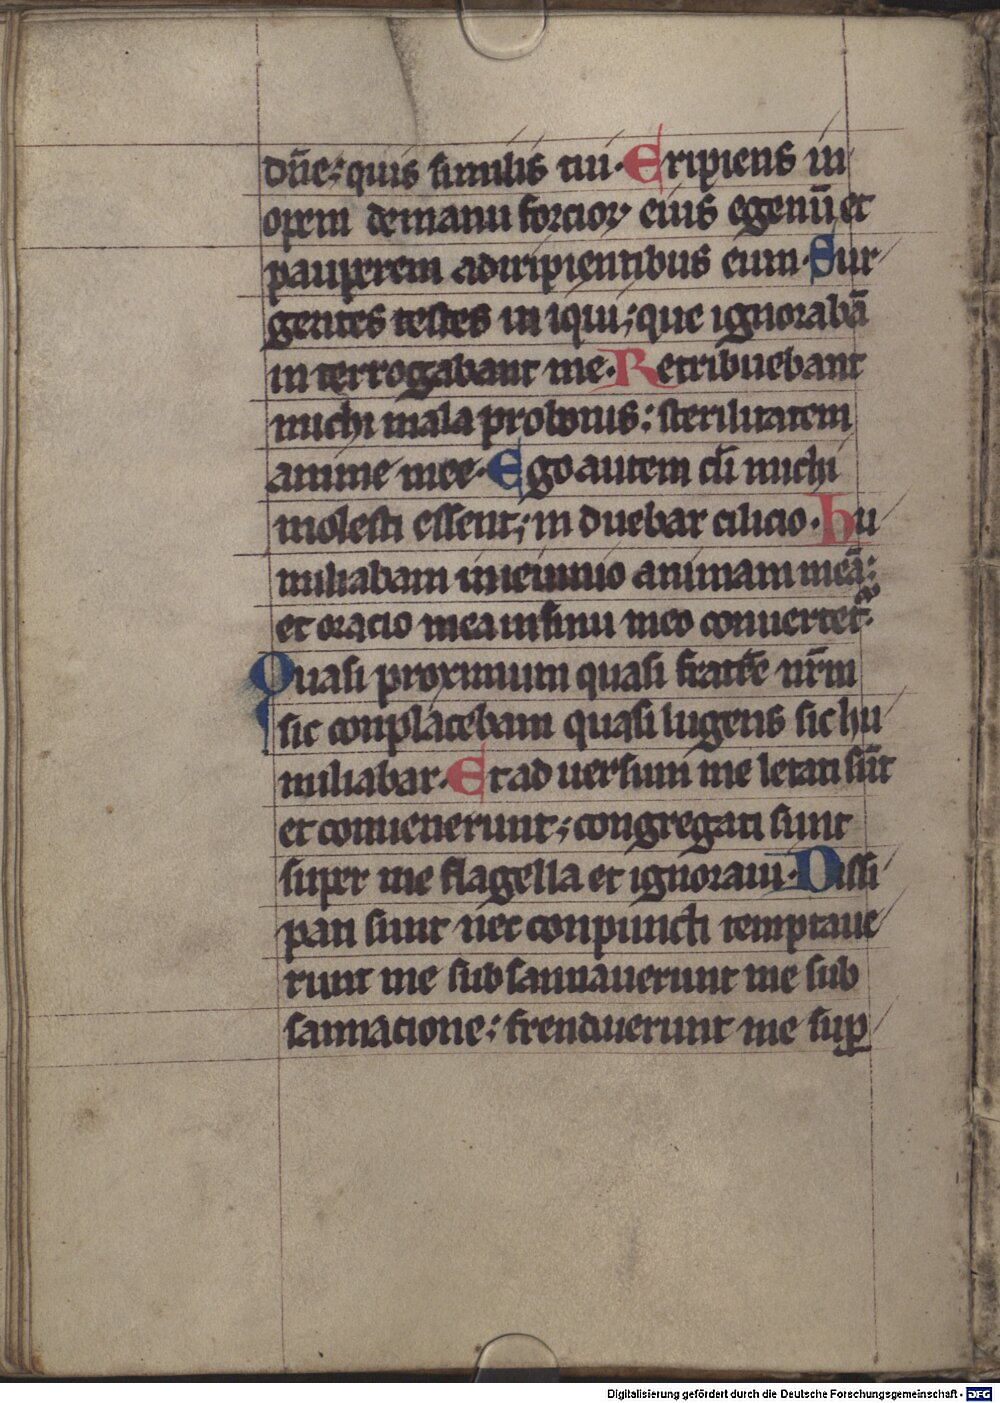 dn̄e: quis similis tui. Eripiens in
opem demanu forcioꝝ eius egenū et
pauperem adiripientibus eum. Sur
gentes testes in iqui; que ignorabā
in terrogabant me. Retribuebant
michi mala probonis: sterilitatem
anime mee. Ego autem cū michi
molesti essent; in duebar cilicio. hu
miliabam inieiunio animam meā:
et oracio mea insinu meo conuertet᷑.
Quasi proximum quasi fratrē nr̄m
sic conplacebam quasi lugens sic hu
miliabar. Et ad uersum me letati sūt
et conuenerunt; congregati sunt
super me flagella et ignoraui. Dissi
pati sunt nec conpuncti temptaue
runt me sub sannauerunt me sub
sannacione: frenduerunt me suꝑ
Digitalisierung gefördert durch die Deutsche Forschungsgemeinschaft - DFG